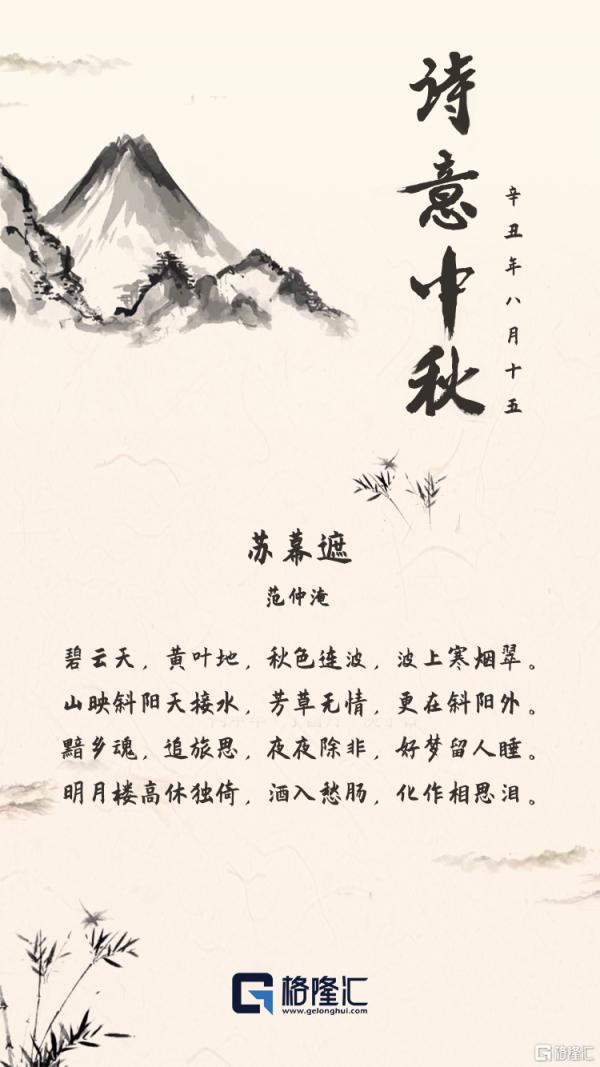 诗意中秋
辛丑年八月十五
苏幕遮
范仲淹
碧云天，黄叶地，秋色连波，波上寒烟翠。
山映斜阳天接水，芳草无情，更在斜阳外。
黯乡魂，追旅思，夜夜除非，好梦留人睡。
明月楼高休独倚，酒入愁肠，化作相思泪。
格隆汇
www.gelonghui.com
格隆汇